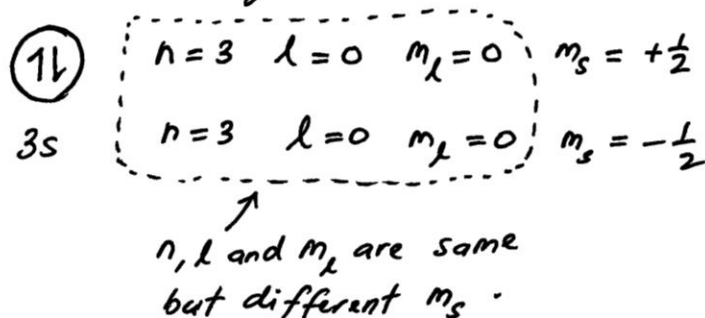 ⥮ n = 3 l = 0 mₗ = 0 mₛ = +½
3s n = 3 l = 0 mₗ = 0 mₛ = -½
n, l and mₗ are same
but different mₛ .